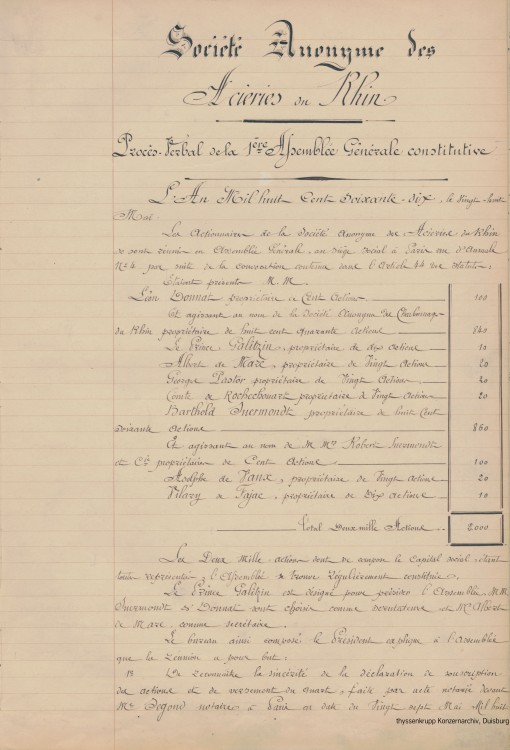 Société Anonyme des
Acieries du Rhin
Procès-Verbal de la 1ère Assemblée Générale constitutive
L'An Mil huit Cent Soixante Dix, le Vingt Sept
Mai
Les Actionnaires de la Société Anonyme des Acieries du Rhin
se sont réunis en Assemblée Générale, au siège social à Paris rue d'Aumale
No 4 par suite de la convocation contenue dans l'Article 44 des Statuts,
Etaient présents M.M.
Léon Donnat propriétaire de Cent Actions 100
Et agissant au nom de la Société Anonyme des Charbonnages
du Rhin propriétaire de huit cent quarante actions 840
Le Prince Galitzin, propriétaire de dix actions 10
Albert de Marc, propriétaire de Vingt Actions 20
Georges Pastor propriétaire de Vingt Actions 20
Comte de Rochechouart propriétaire de Vingt Actions 20
Barthold Suermondt propriétaire de huit Cent
Soixante Actions 860
Et agissant au nom de M Robert Suermondt
et Cie propriétaire de Cent Actions 100
Adolphe de Vaux, propriétaire de Vingt Actions 20
Vilary de Fajac, propriétaire de Dix Actions 10
Total Deux mille Actions 2000
Les Deux Mille actions dont se compose le Capital social étant
toutes représentées, l'Assemblée se trouve régulièrement constituée.
Le Prince Galitzin est désigné pour présider l'Assemblée M.M.
Suermondt & Donnat sont choisis comme scrutateurs et Mr Albert
de Marc, comme secrétaire.
Le bureau ainsi composé le Président explique à l'Assemblée
que la réunion a pour but:
De reconnaître la sincérité de la déclaration de souscription
des actions et de versement du quart, faite par acte notarié devant
Me Segond notaire à Paris en date du Vingt sept Mai Mil huit
thyssenkrupp Konzernarchiv, Duisburg